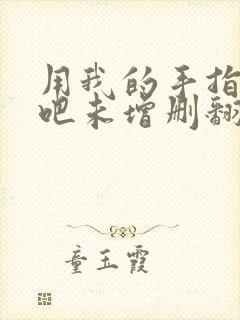 用我的手指
吧未增删翻
童玉霞